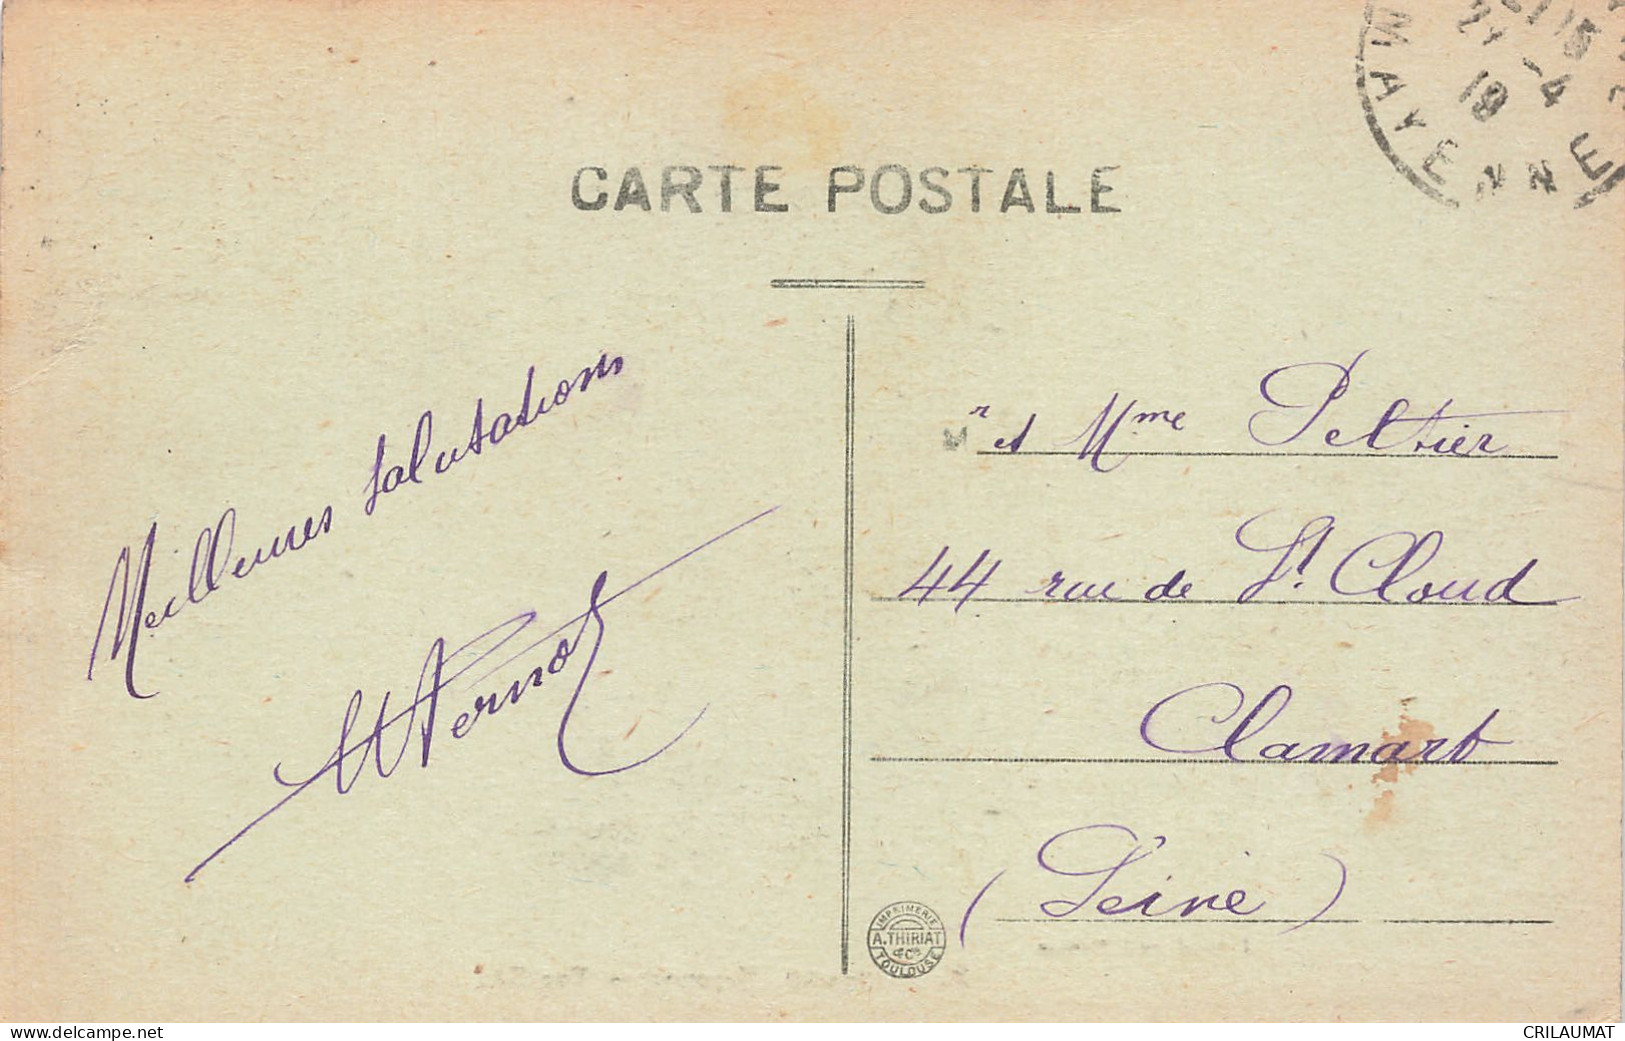 MAYENNE
21 -4
19
CARTE POSTALE
Meilleures salutations
r et Mme Peltier
44 rue de St. Cloud
Clamart
(Seine)
IMPRIMERIE
A. THIRIAT
& Cie
TOULOUSE
www.delcampe.net
CRILAUMAT